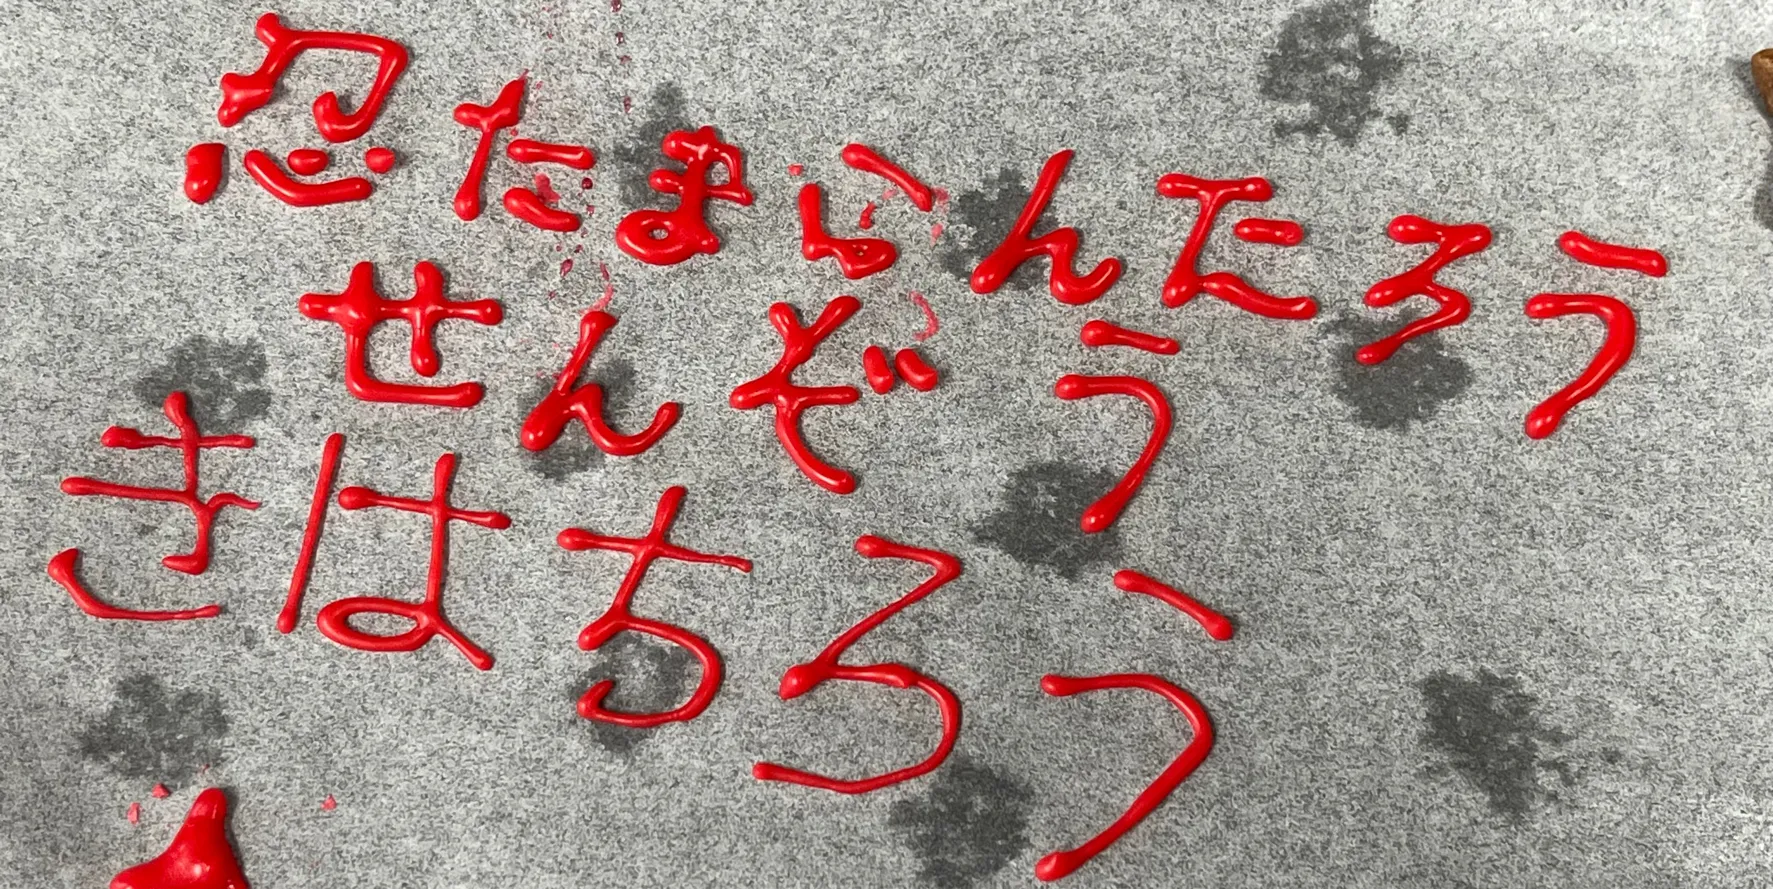 忍たまらんたろう
せんぞう
きはちろう